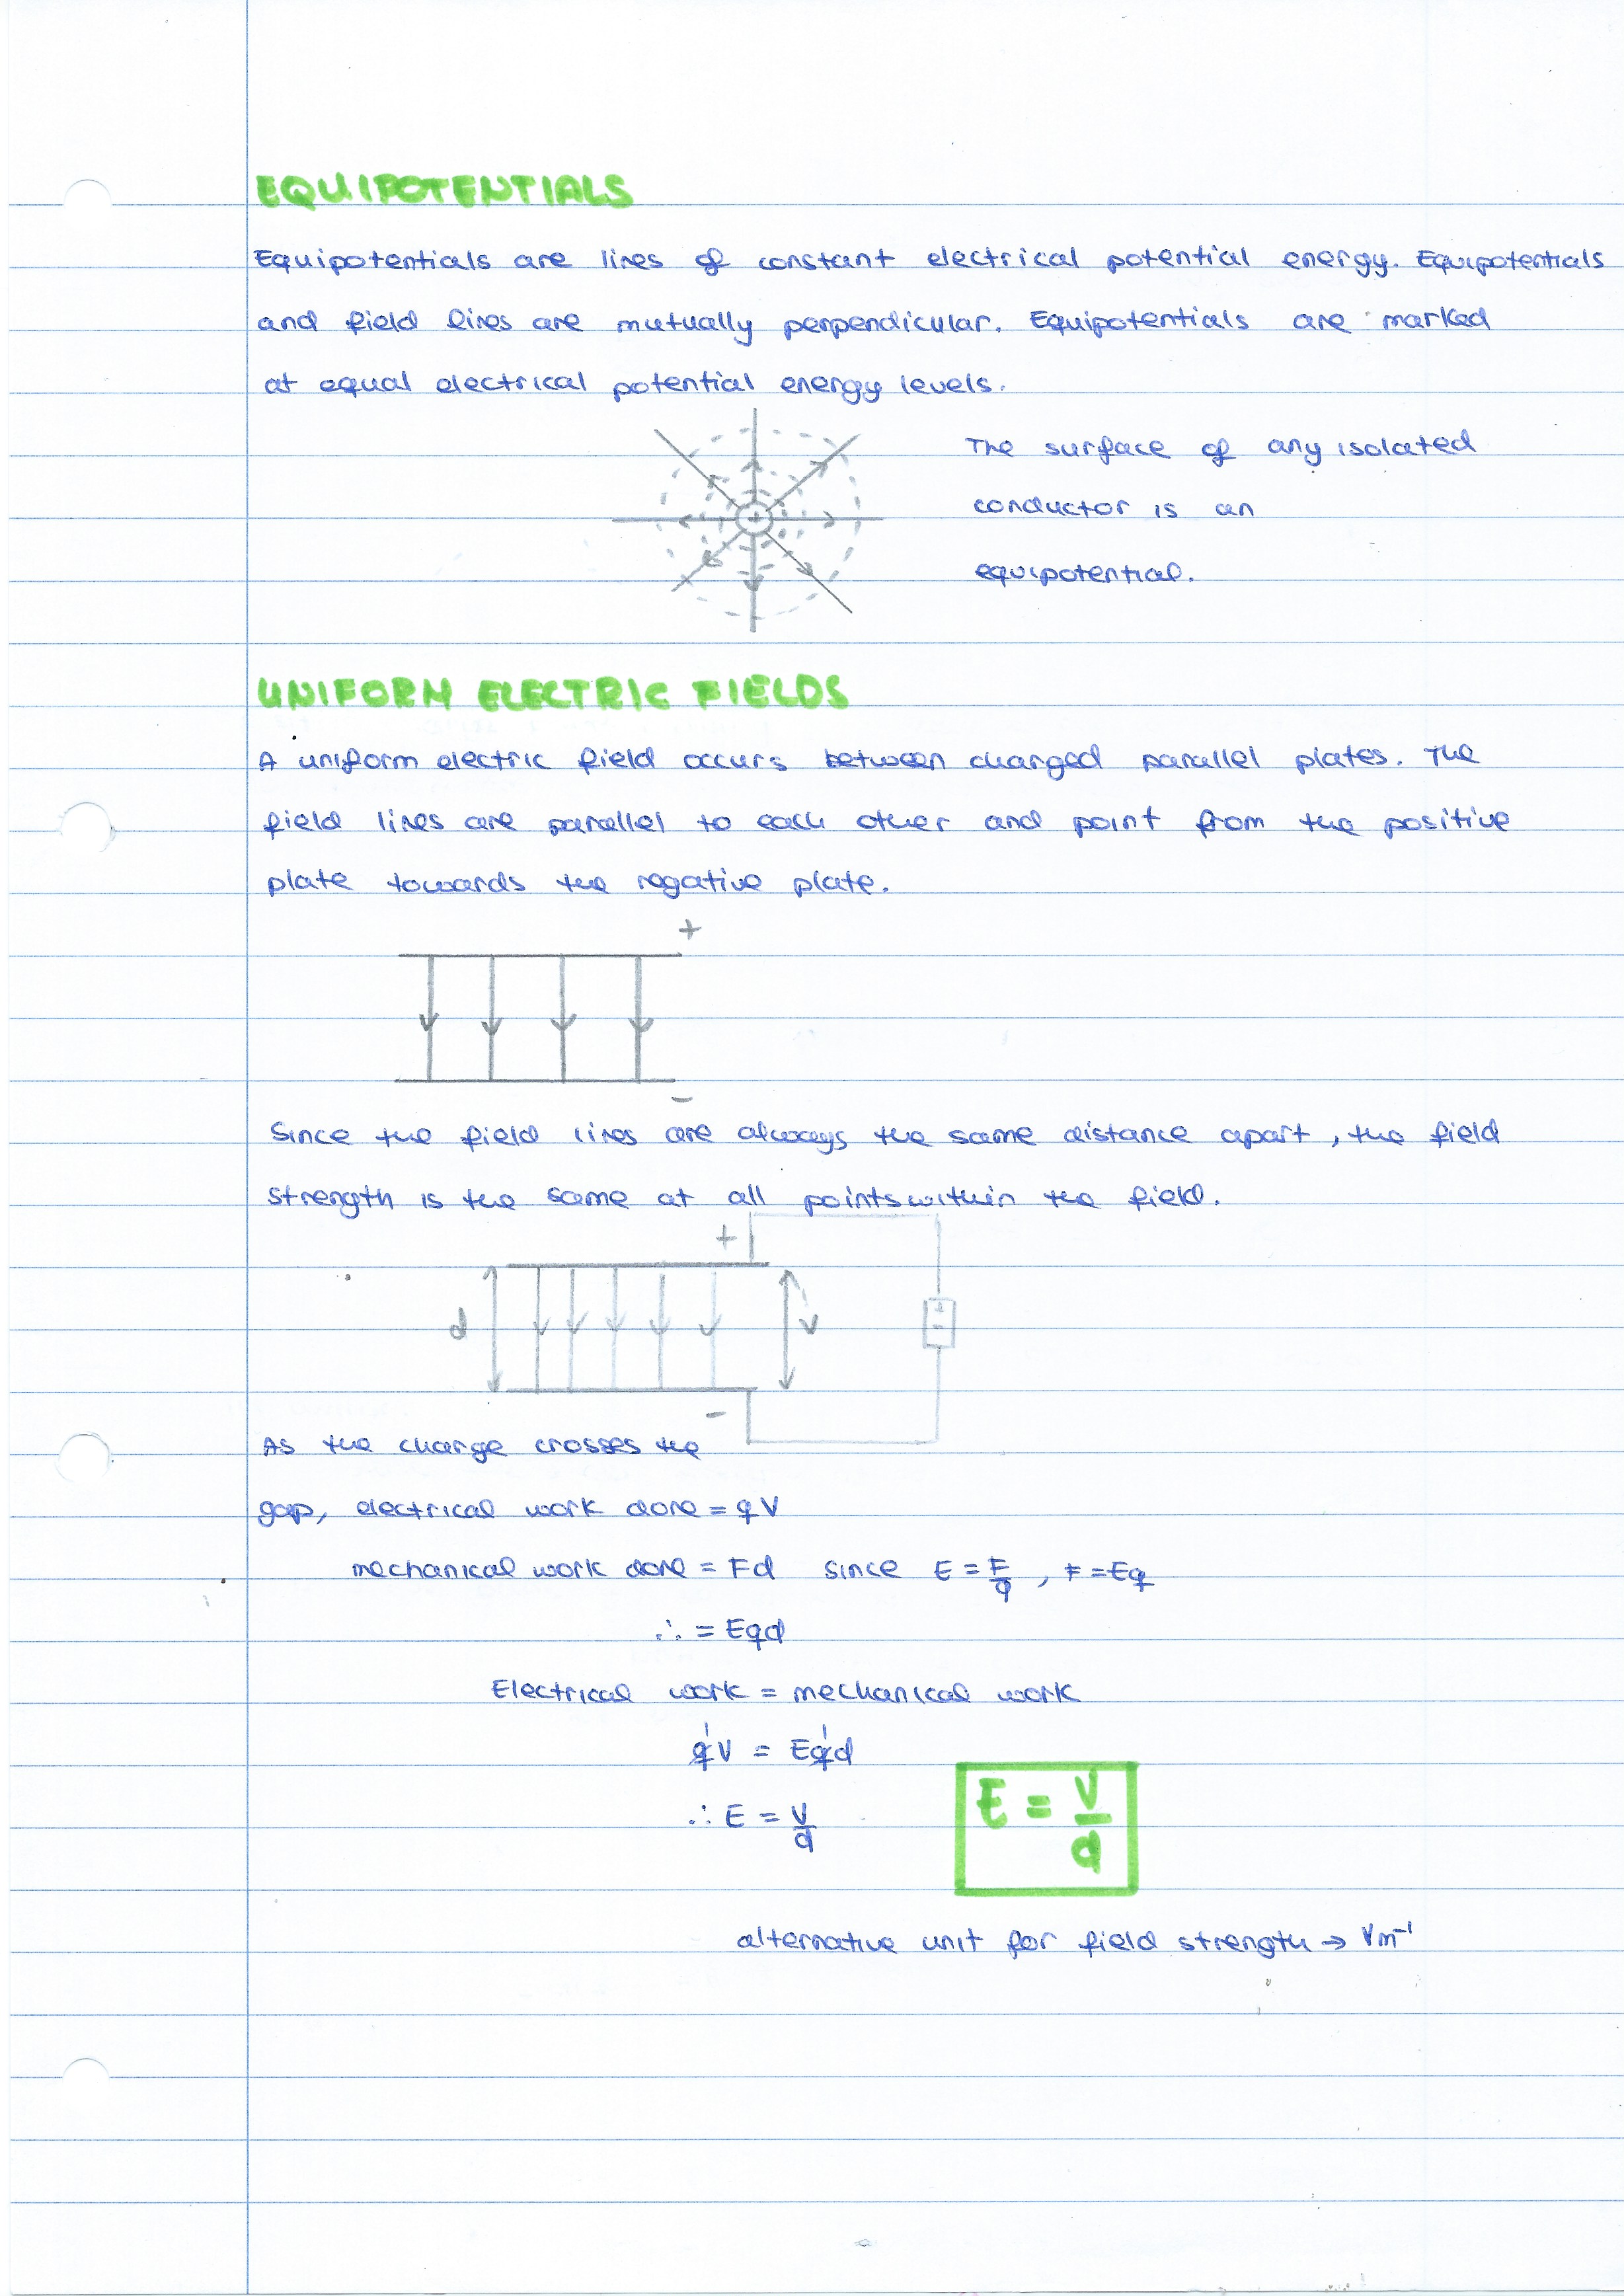 EQUIPOTENTIALS
Equipotentials are lines of constant electrical potential energy. Equipotentials
and field lines are mutually perpendicular. Equipotentials are marked
at equal electrical potential energy levels.
The surface of any isolated
conductor is an
equipotential.
+
UNIFORM ELECTRIC FIELDS
A uniform electric field occurs between charged parallel plates. The
field lines are parallel to each other and point from the positive
plate towards the negative plate.
+
-
Since the field lines are always the same distance apart, the field
strength is the same at all points within the field.
+
d
V
+
-
-
As the charge crosses the
gap, electrical work done = qV
mechanical work done = Fd since E = F/q, F = Eq
∴ = Eqd
Electrical work = mechanical work
qV = Eqd
∴ E = V/d
E = V/d
alternative unit for field strength → Vm⁻¹